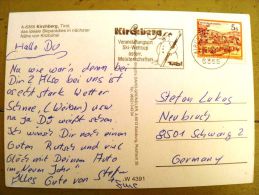 A-6365 Kirchberg, Tirol,
das ideale Skiparadies in nächster
Nähe von Kitzbühel
Kirchberg
Veranstaltungsort
Ski-Weltcup
österr.
Meisterschaften
Tirol
6365
Hallo Du
Na wie war's denn bei
Dir? Also bei uns ist
echt stark Wetter
Schnee, (Weiber) usw
na ja Du weißt schon
Ich wünsch Dir noch einen
Guten Rutsch und viel
Glück mit Deinem Auto
im Neuen Jahr.
Alles Gute von Stefan
Stefan Lukas
Neubruch
8501 Schwarz 2
Germany
W 4391